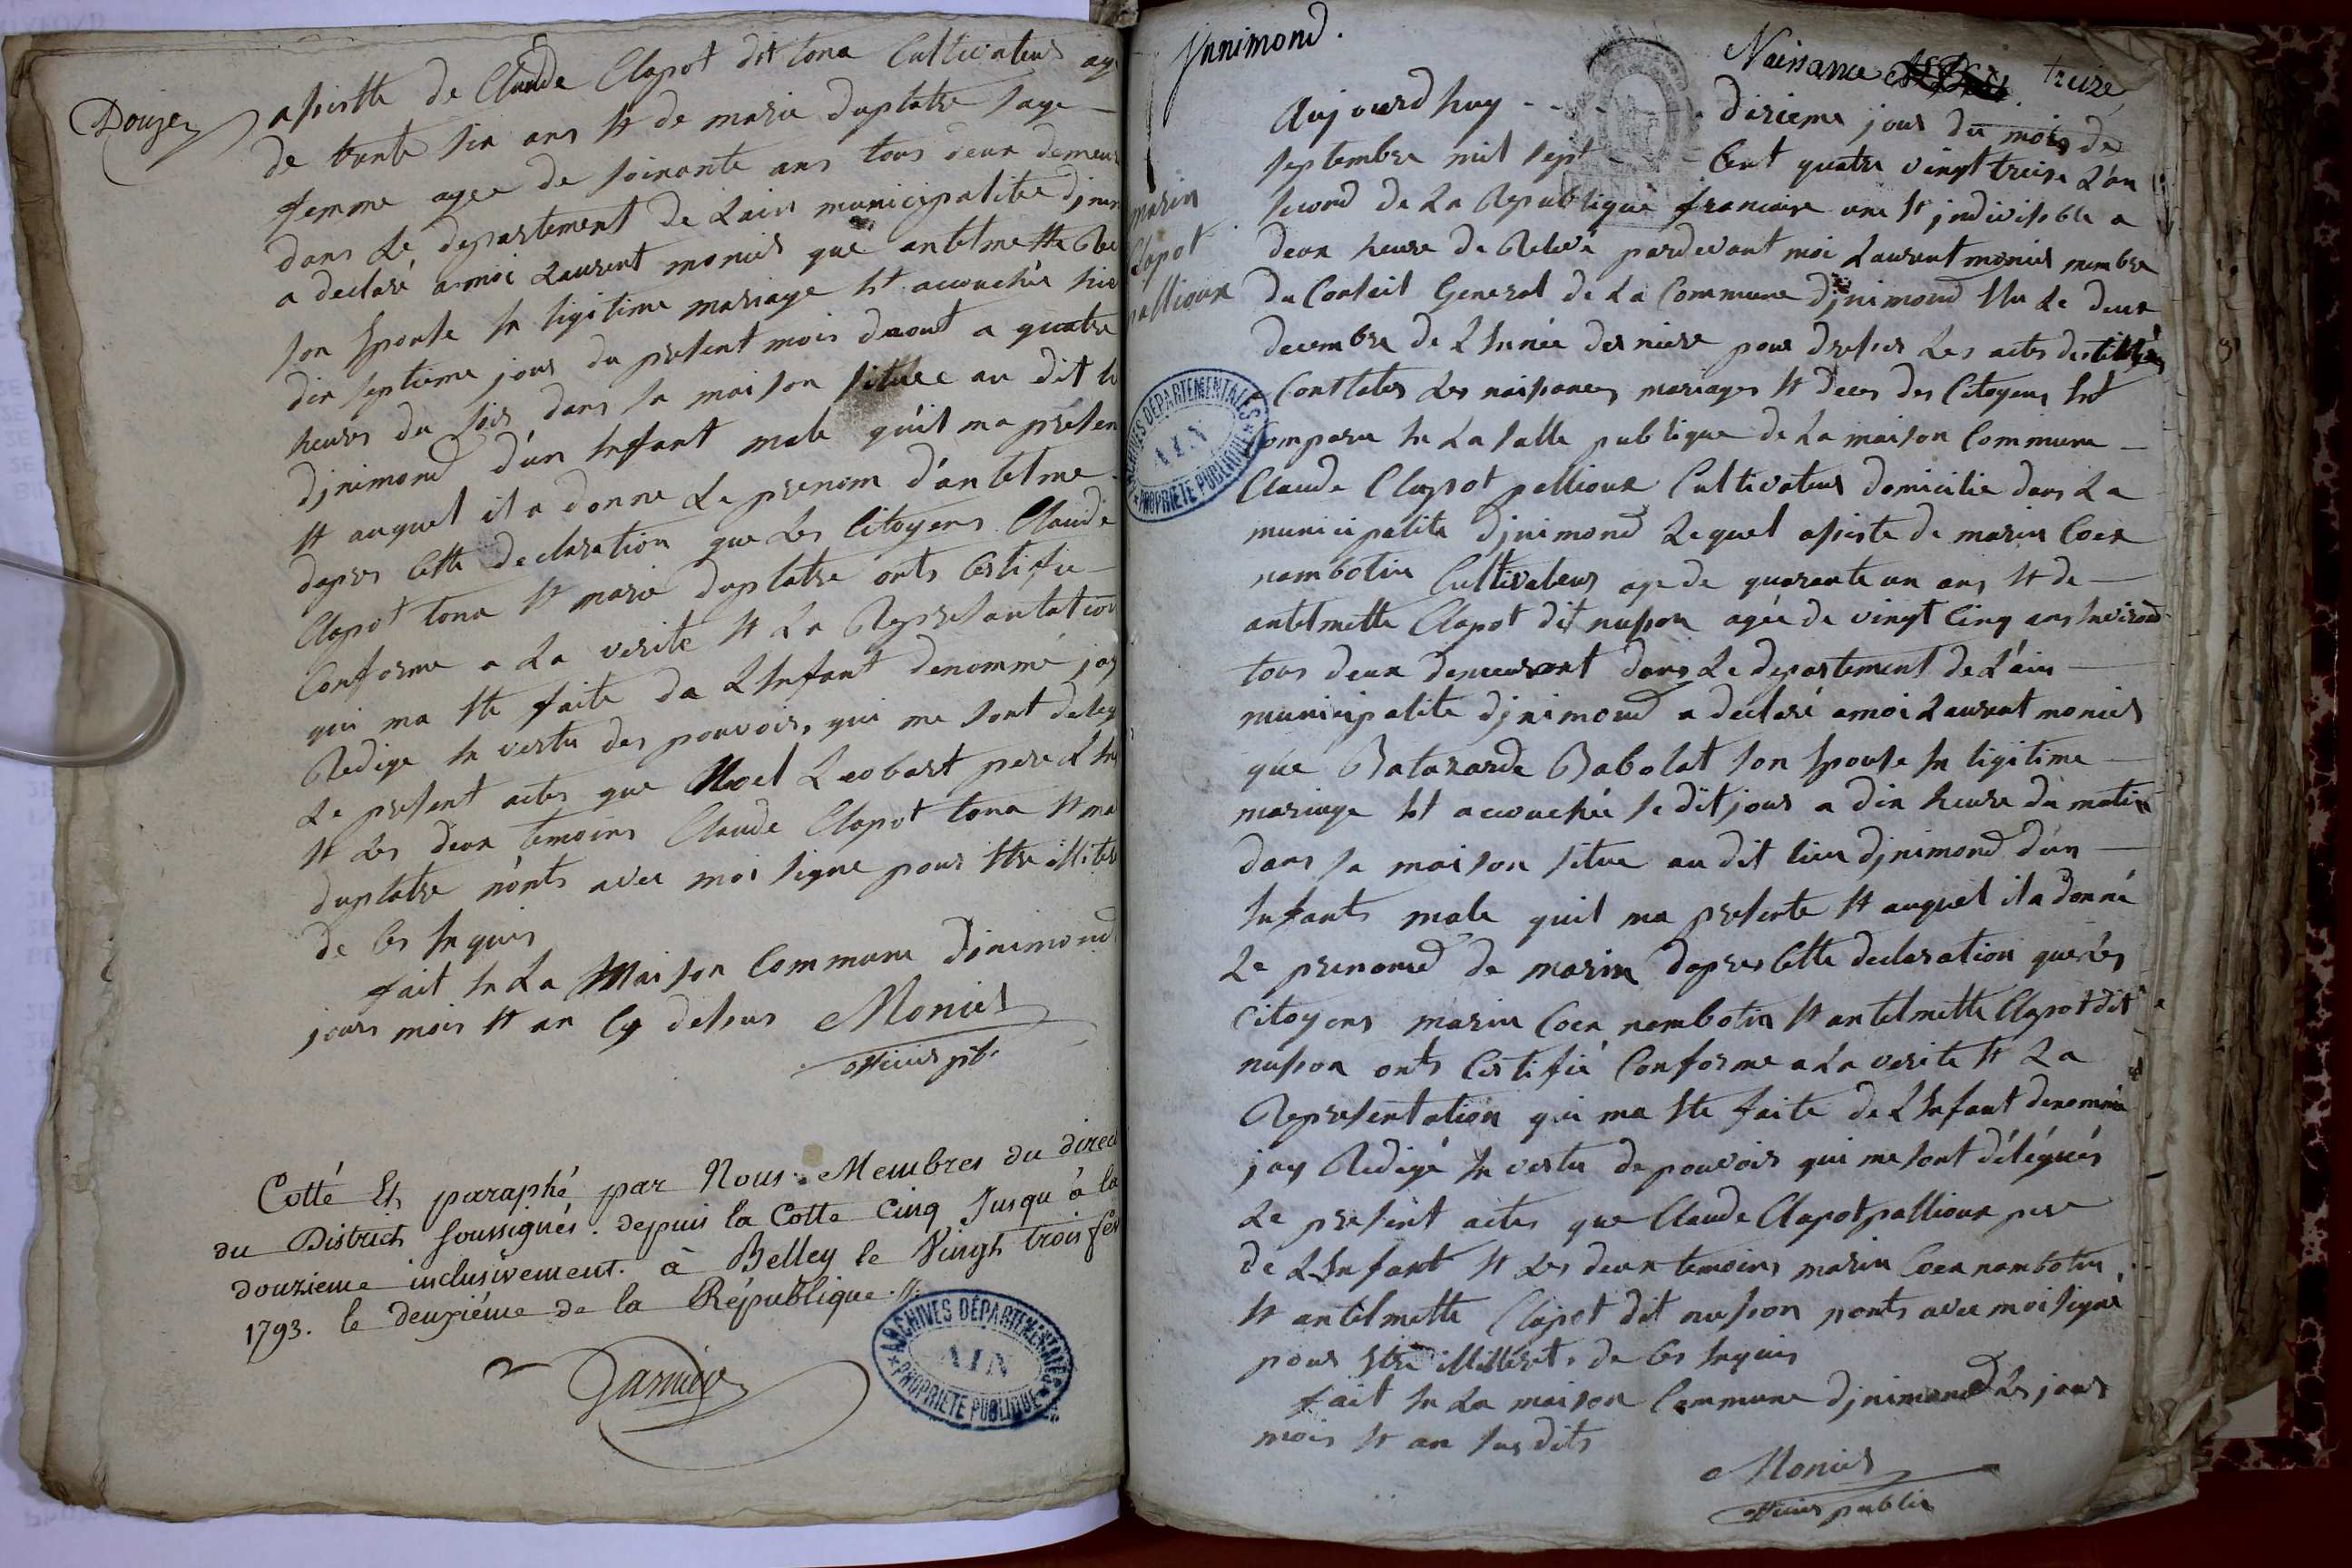 Douze
assistte de Claude Clapot dit tona Cultivateur ag
de trente six ans et de marie duplatre sage
femme agee de soixante ans tous deux demeur
dans Le departement de Lain municipalitee djnim
a declaré amoi Laurent monier que antelmette
son Epouse En ligitime mariage Est accouchée hie
dix septieme jour du present mois daout a quatre
heures du soir dans sa maison située au dit li
djnimond d'un Enffant male qu'il ma presen
Et auquel il a donne Le prenom d'antelme
dapres Cette declaration que Les Citoyens Claude
Clapot tona Et marie duplatre onts Certifie
Conforme a La verite Et La Representation
qui ma Ete faite da LEnfant denommé jay
Redige En vertu des pouvoirs, qui me sont deleg
Le present actes que Noel Leobart pere d En
Et Les deux temoins Claude Clapot tona Et ma
duplatre n'onts avec moi signe pour Etre illiter
de Ces Enquis
fait En La Maison Commune djnimond
jours mois Et an Cy dessus Monier
officier pb.
Cotté Et paraphé par Nous Membres du direc
du District soussignés. depuis la Cotte Cinq Jusqu'à la
douzieme inclusivement. à Belley le Vingt trois fev
1793. le deuxiéme de la République.
Garnier
Jnnimond.
Naissance treize
marin
Clapot
pallioux
Aujourdhuy - - dixieme jour du mois de
septembre mil sept - Cent quatre vingt treize L'an
second de La Republique francaise une Et jndivisible a
deux heure de Relevé pardevant moi Laurent monier membre
du Conseil General de La Commune djnimond Elu Le deux
decembre de LEnnée derniere pour dresser Les actes destiltés
a Conttater Les naissances mariages Et deces des Citoyens Est
Comparu En La salle publique de La maison Commune
Claude Clapot pallioux Cultivateur domicilie dans La
municipalite djnimond Lequel assiste de marin Coex
nambotin Cultivateur age de quarante un ans Et de
antelmette Clapot dit nusson agée de vingt Cinq ans Environ
tous deux demeurant dans Le departement de L'ain
municipalite djnimond a declaré amoi Laurent monier
qué Batazarde Babolat son Epouse En ligitime
mariage Est accouchée se dit jour a dix heure du matin
dans sa maison situe au dit lieu djnimond d'un
Enfants male quil ma presente Et auquel il a donné
Le prenomd de marin dapres Cette declaration que Les
Citoyens marin Coex nambotin Et antelmette Clapot dit
nusson onts Certifié Conforme a La verite Et La
Representation qui ma Ete faite de LEnfant denommé
jay Redigé En vertu de pouvoir qui me sont délégués
Le present actes que Claude Clapot pallioux pere
de LEnfant Et Les deux temoins marin Coex nambotin
Et antelmette Clapot dit nusson nonts avec moi signé
pour Etre illitterét de Ces Enquis
fait En La maison Commune djnimond Les jour
mois Et an susdits
Monier
officier public
ARCHIVES DÉPARTEMENTALES
AIN
PROPRIÉTÉ PUBLIQUE
ARCHIVES DÉPARTEMENTALES
AIN
PROPRIÉTÉ PUBLIQUE